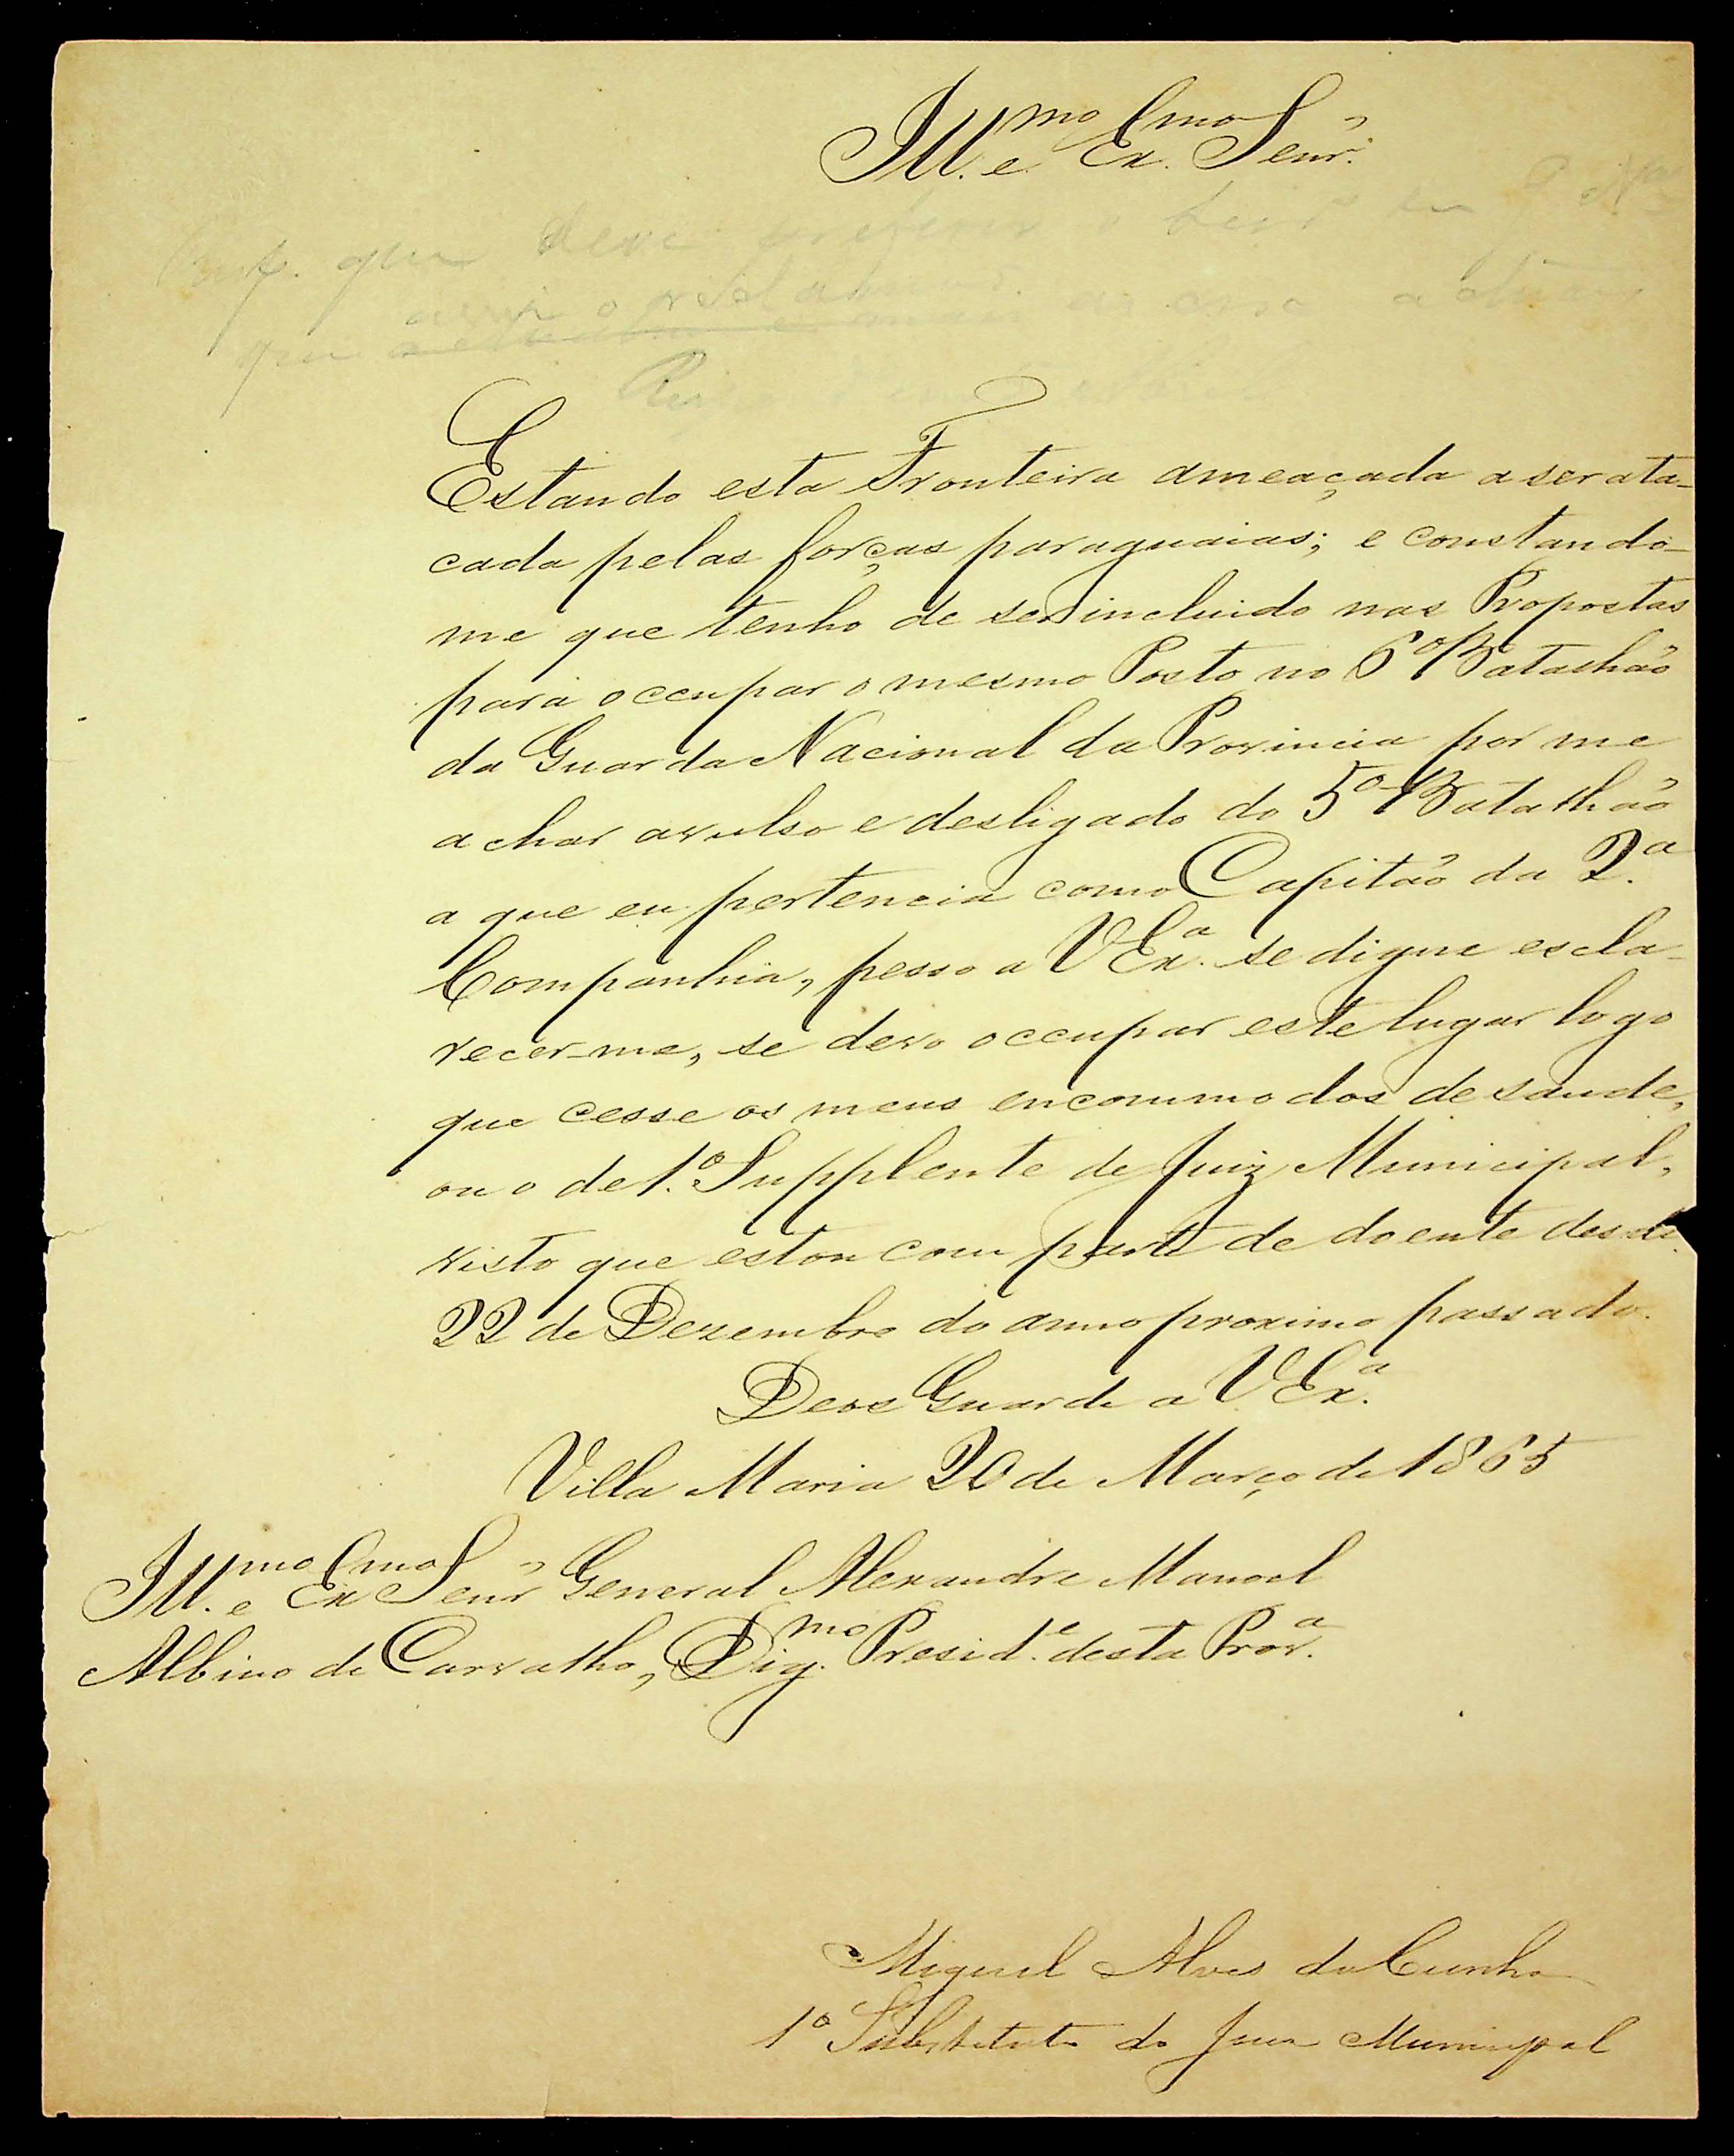 Ill.mo e Ex.mo Senr.
que deve
Estando esta Fronteira ameaçada a ser ata-
cada pelas forças paraguaias; e constando-
me que tenho de ser incluido nas Propostas
para occupar o mesmo Posto no 6º Batalhão
da Guarda Nacional da Provincia por me
achar avulso e desligado do 5º Batalhão
a que eu pertencia como Capitão da 2.ª
Companhia, pesso a V Ex.ª se digne escla-
recer-me, se devo occupar este lugar logo
que cesse os meus encommodos de saude,
ou o de 1.º Supplente de Juiz Municipal,
visto que estou com parte de doente desde
22 de Dezembro do anno proximo passado.
Deos Guarde a V Ex.ª
Villa Maria 20 de Março de 1865
Ill.mo e Ex.mo Senr General Alexandre Manoel
Albino de Carvalho, Dig.mo Presid.e desta Prov.ª
Miguel Alves da Cunha
1º Substituto do Juiz Municipal